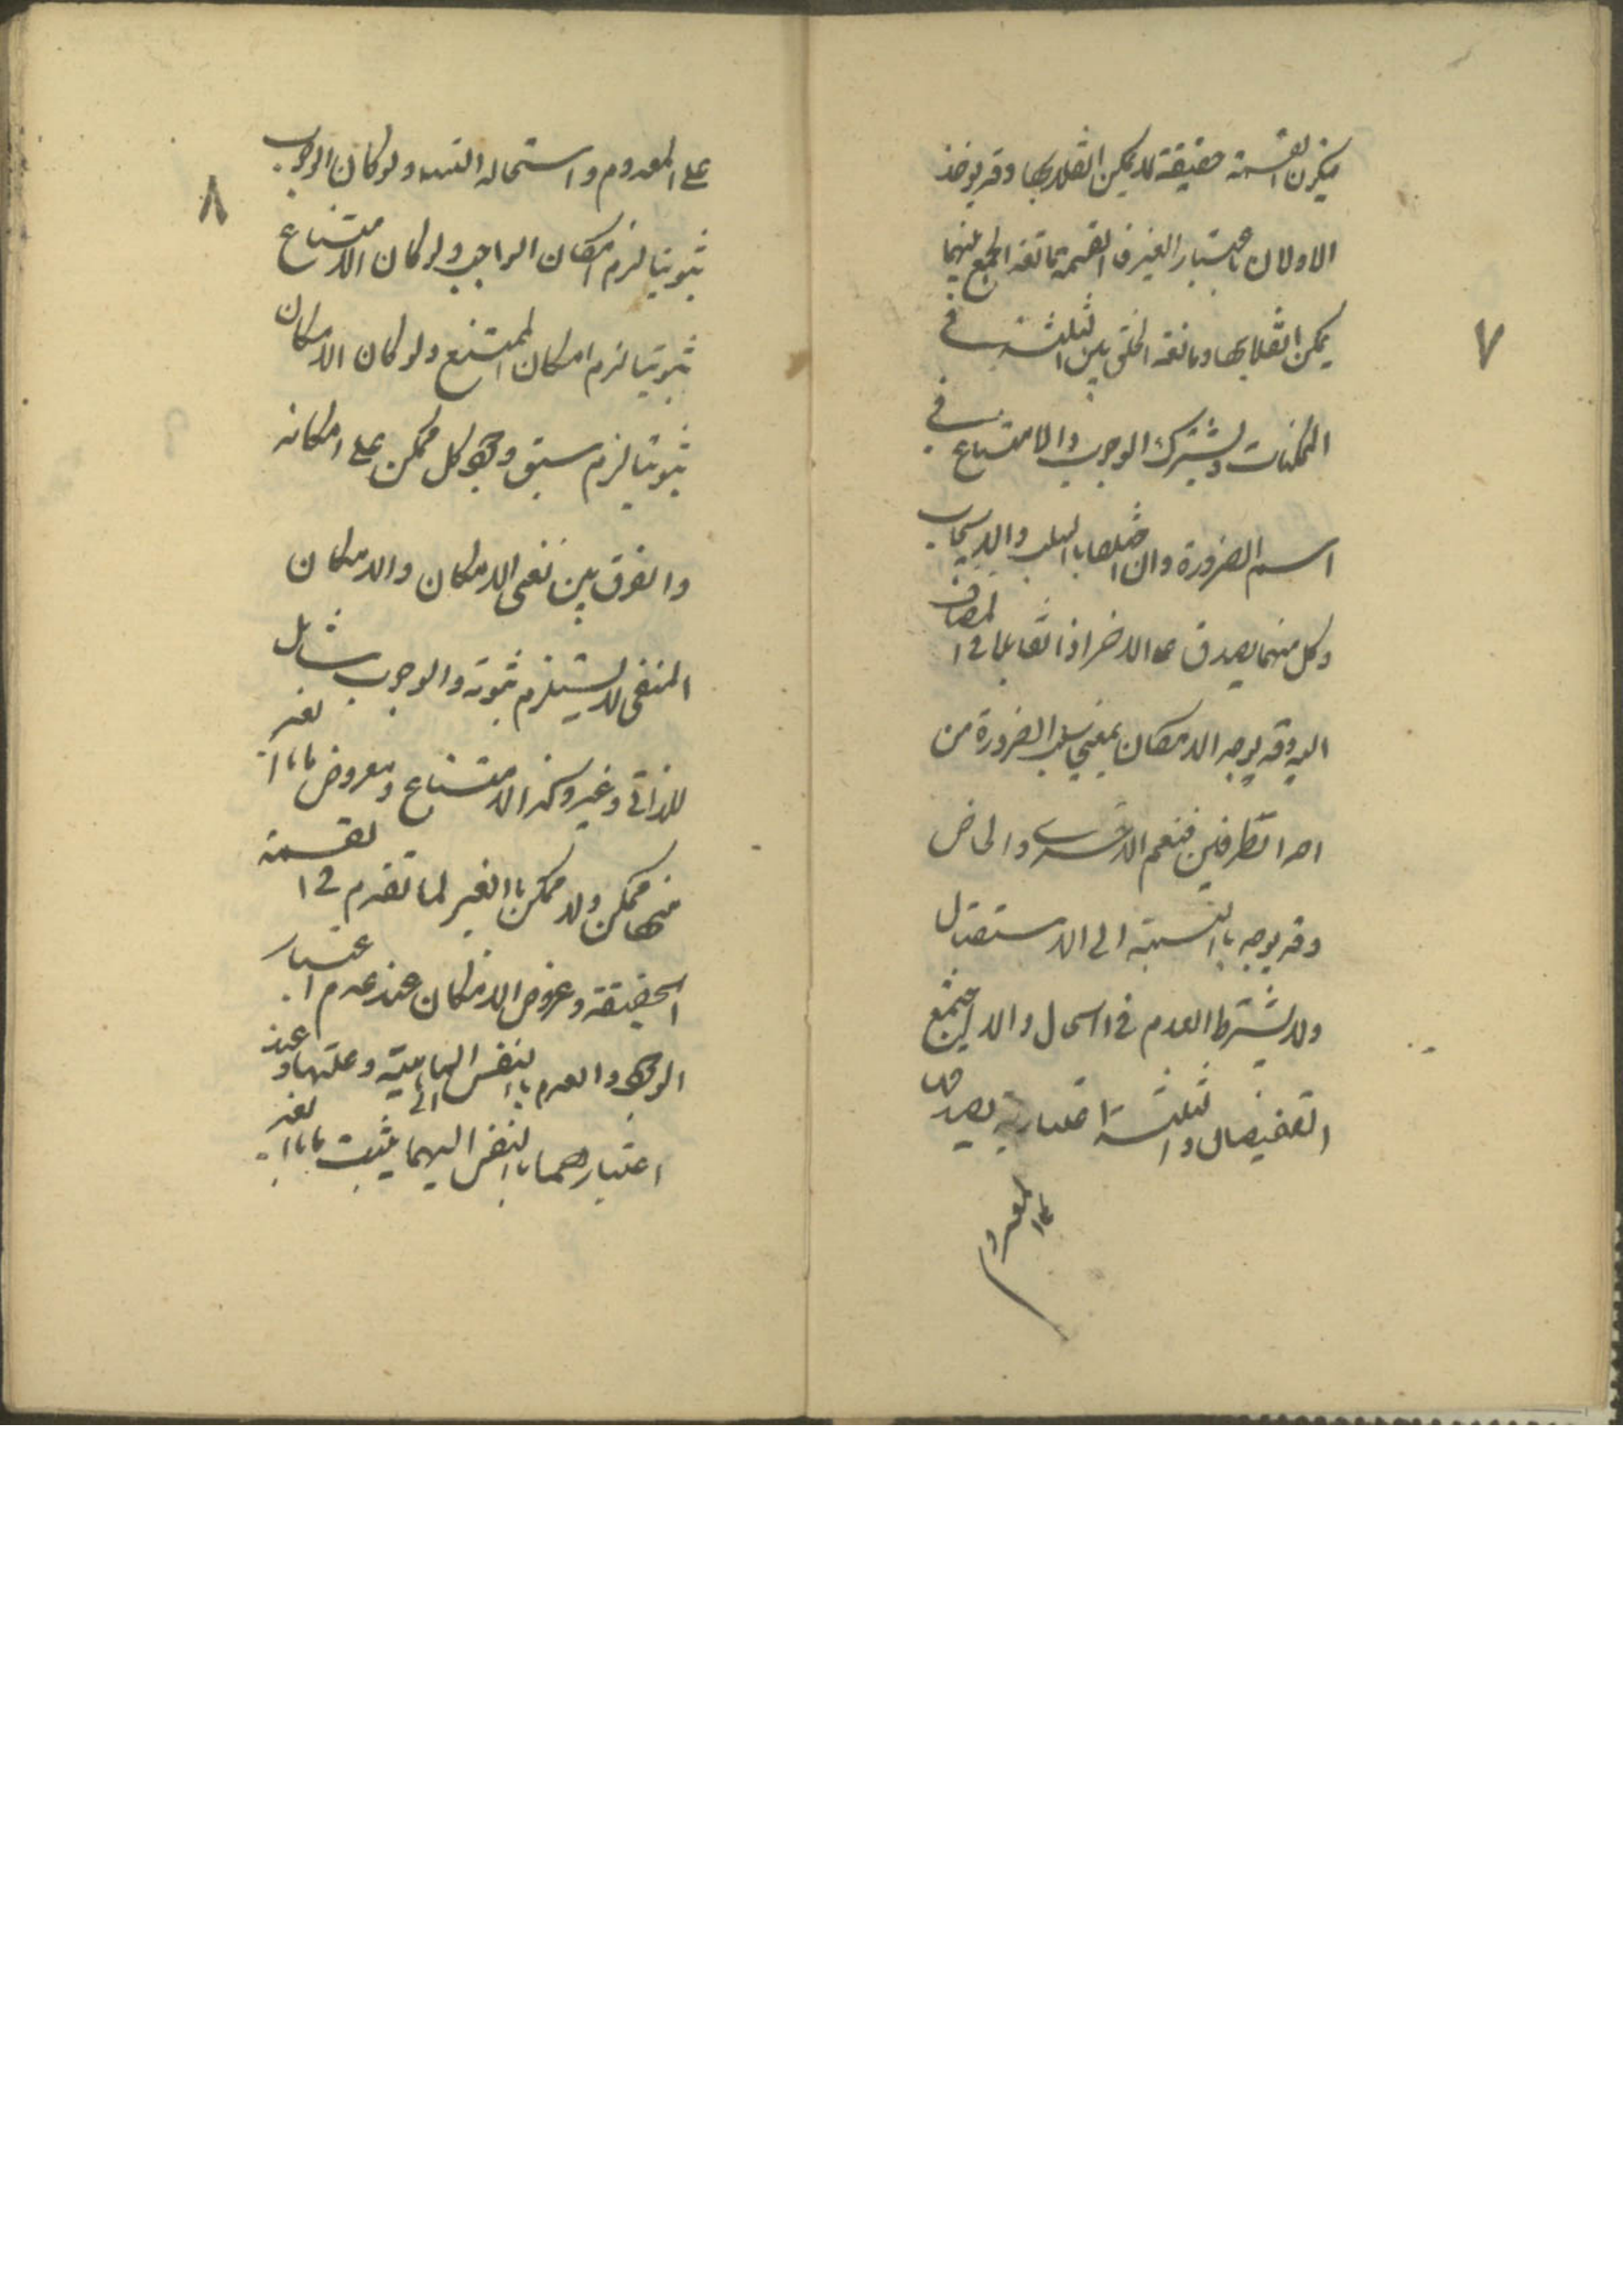 ٧
فيكون القسمة حقيقة لا يمكن انقلابها وقد يوخذ
الاولان باعتبار الغير فالقسمة مانعة الجمع بينهما
يمكن انقلابها ومانعة الخلو بين الثلثة في
الممكنات ويشترك الوجوب والامتناع في
اسم الضرورة وان اختلفا بالسلب والايجاب
وكل منهما يصدق على الاخر اذا تقابلا في المضاف
اليه وقد يوجد الامكان بمعنى سلب الضرورة من
احد الطرفين فيعم الاخرى والخاص
وقد يوجد بالنسبة الى الاستقبال
ولا يشترط العدم في الحال والا لاجتمع
النقيضان والثلثة اعتبارية لصدقها
على المعدوم
٨
على المعدوم واستحالة التسلسل ولو كان الوجوب
ثبوتيا لزم امكان الواجب ولو كان الامتناع
ثبوتيا لزم امكان الممتنع ولو كان الامكان
ثبوتيا لزم سبق وجود كل ممكن على امكانه
والفرق بين نفى الامكان والامكان
المنفى لا يستلزم ثبوته والوجوب شامل
للذاتي وغيره وكذا الامتناع ومعروض ما بالغير
منهما ممكن ولا ممكن بالغير لما تقدم في القسمة
الحقيقة وعروض الامكان عند عدم اعتبار
الوجود والعدم بالنفس الى الماهية وعلتها وعند
اعتبارهما بالنفس اليهما يثبت ما بالغير